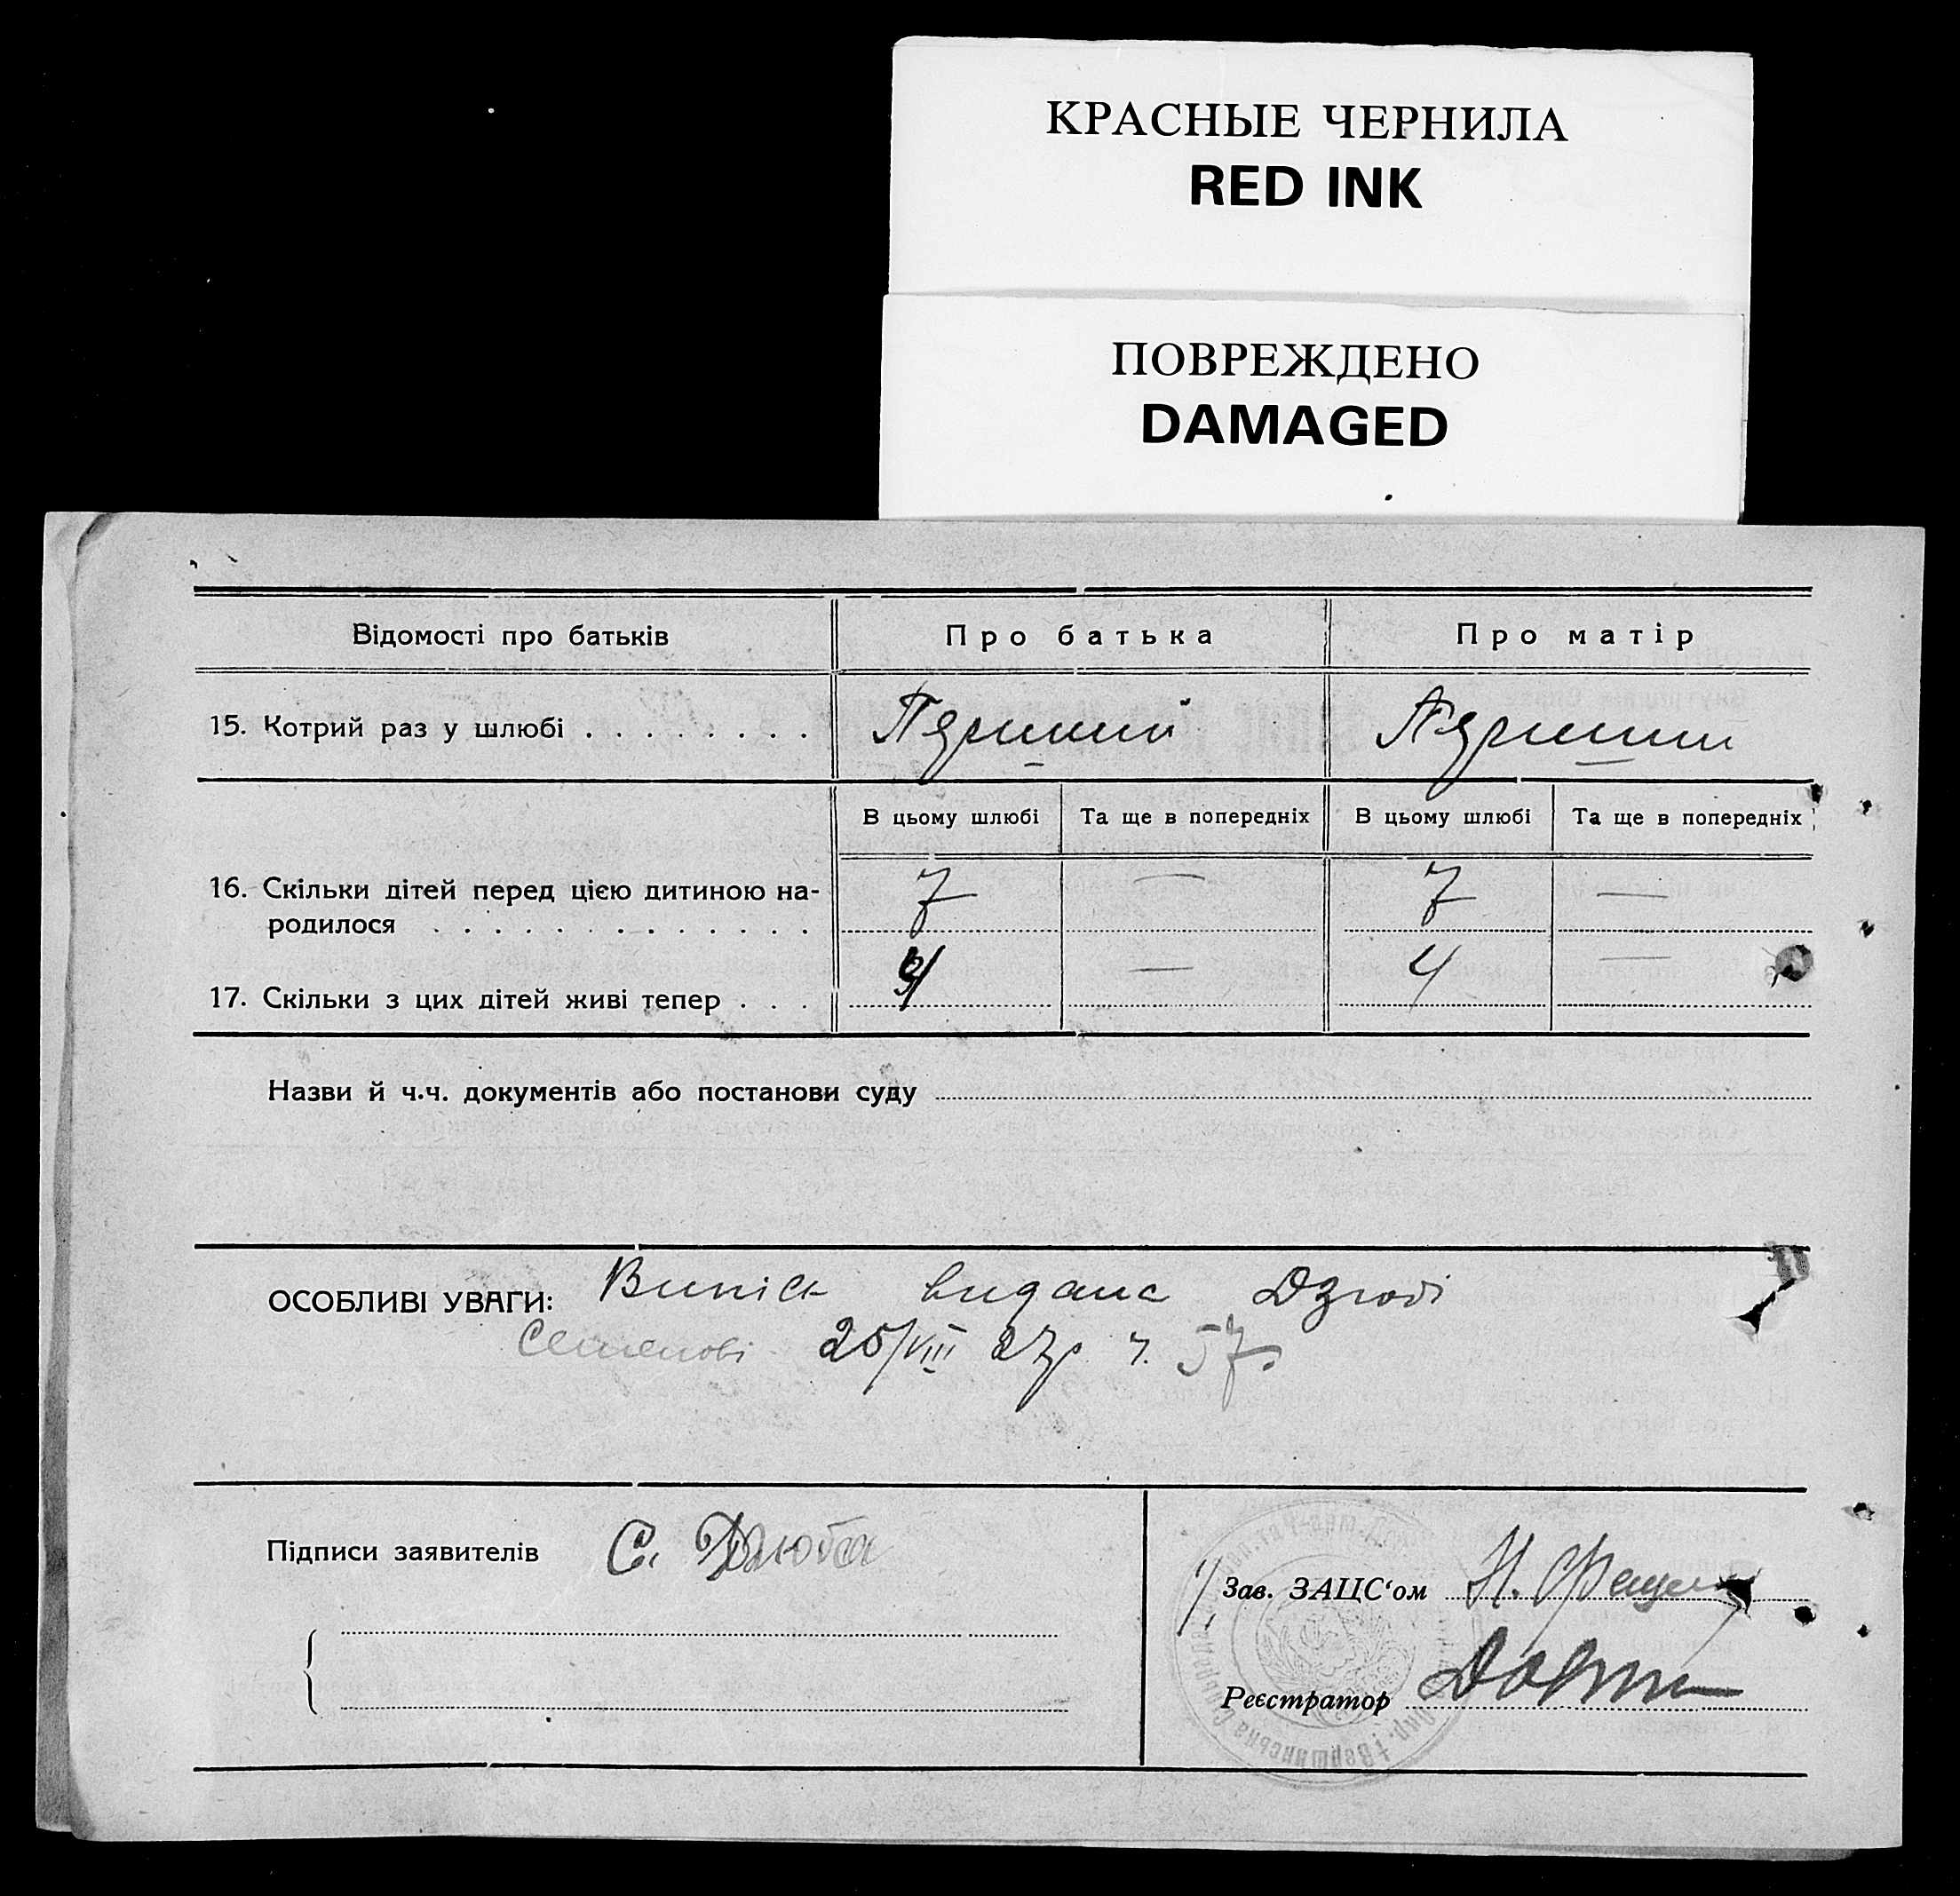 КРАСНЫЕ ЧЕРНИЛА
RED INK
ПОВРЕЖДЕНО
DAMAGED
Відомості про батьків
Про батька
Про матір
15. Котрий раз у шлюбі . . . . . . . .
В цьому шлюбі
Та ще в попередніх
В цьому шлюбі
Та ще в попередніх
16. Скільки дітей перед цією дитиною на-
родилося . . . . . . . . . . . . .
7 — 7 —
17. Скільки з цих дітей живі тепер . . .
4 — 4 —
Назви й ч.ч. документів або постанови суду
ОСОБЛИВІ УВАГИ: Випись видана Дзюбі
Семенові 25/VIII 27р. ч. 57.
Підписи заявителів С. Дзюба
Зав. ЗАЦС‘ом Н.
Реєстратор